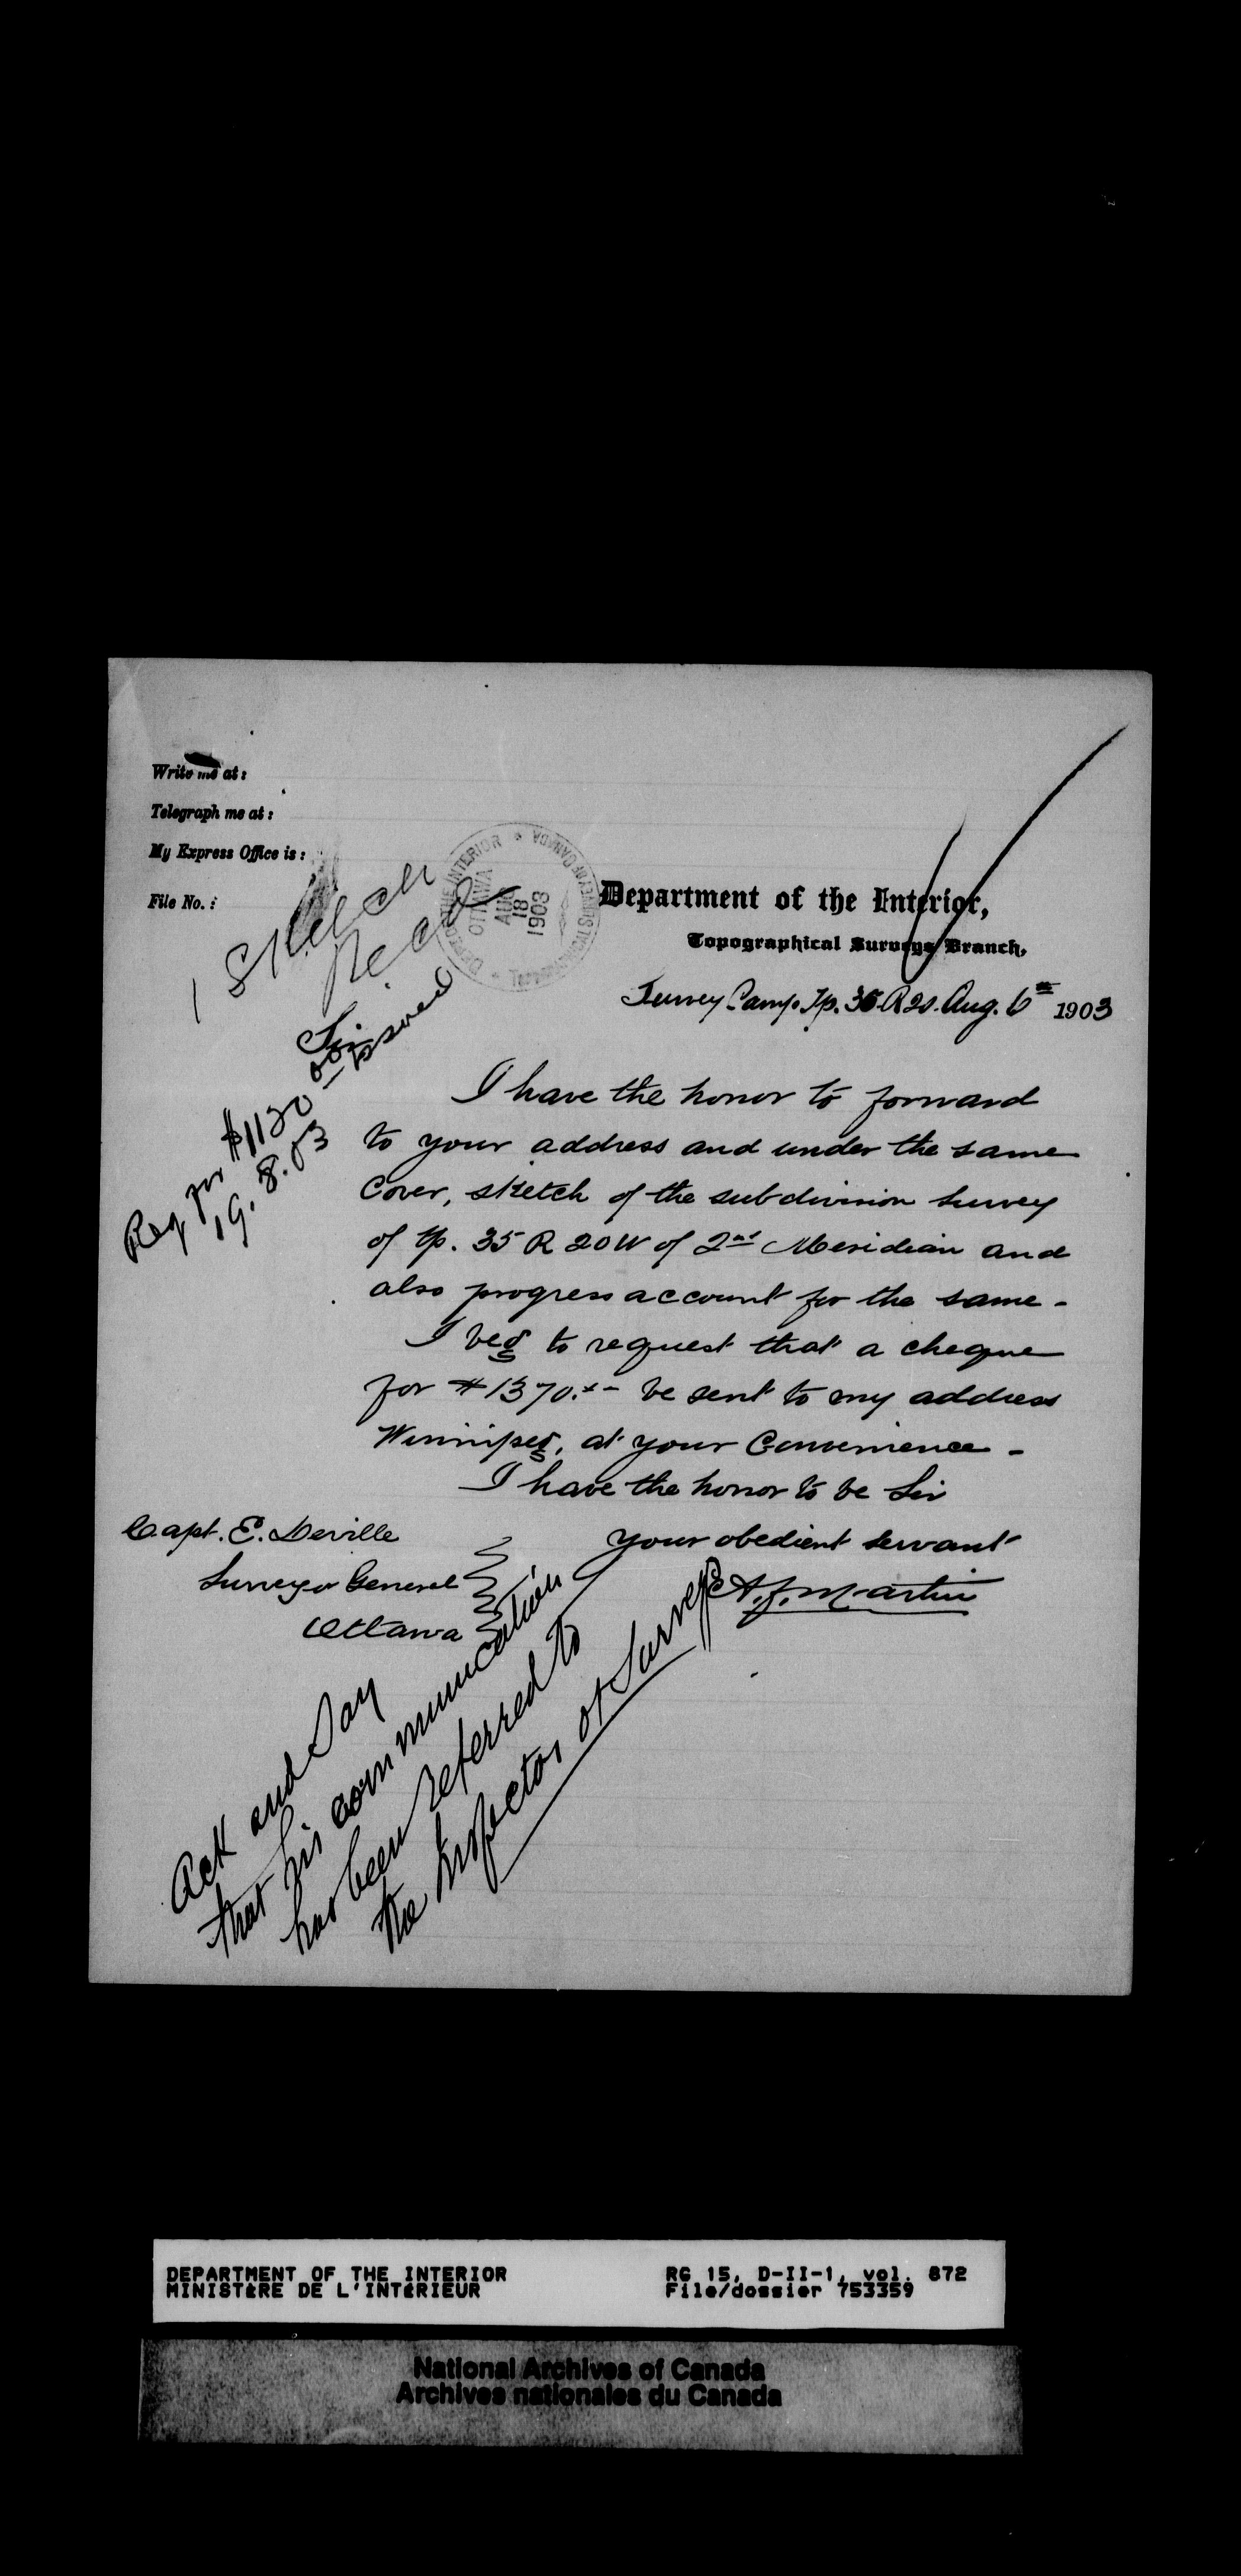 Write me at:
Telegraph me at:
My Express Office is:
File No.:
1 Sketch
Recd
DEPT OF THE INTERIOR * CANADA
OTTAWA
AUG
18
1903
Department of the Interior,
Topographical Surveys Branch,
Survey Camp. Tp. 35 R 20. Aug. 6th 1903
Sir
Req for $1130 00 issued
19.8.03
I have the honor to forward
to your address and under the same
Cover, sketch of the subdivision Survey
of tp. 35 R 20 W of 2nd Meridian and
also progress account for the same -
I beg to request that a cheque
for $1370.xx be sent to my address
Winnipeg, at your Convenience -
I have the honor to be Sir
your obedient servant
Capt. E. Deville
Surveyor General
Ottawa
A. F. Martin
Ack and Say
that his communication
has been referred to
the Inspector of Surveys
DEPARTMENT OF THE INTERIOR
MINISTÈRE DE L'INTÉRIEUR
RG 15, D-II-1, vol. 872
File/dossier 753359
National Archives of Canada
Archives nationales du Canada